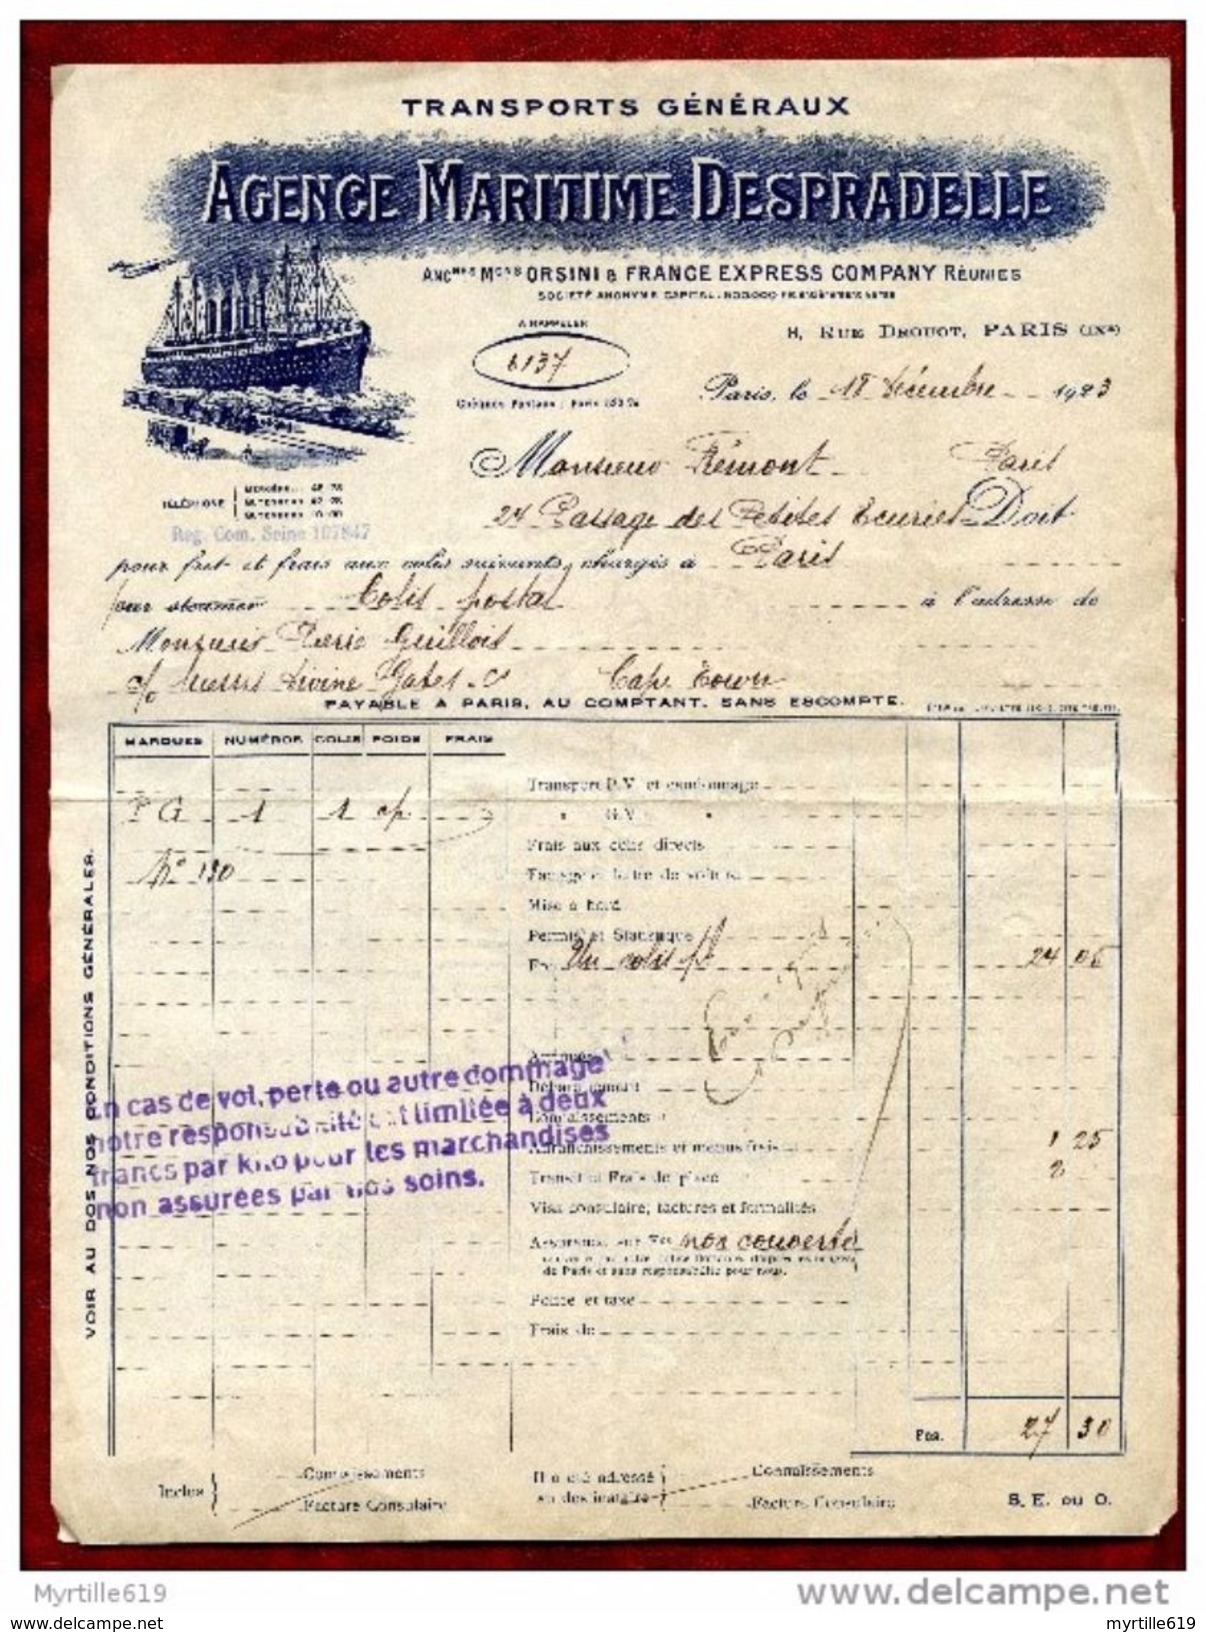 TRANSPORTS GÉNÉRAUX
AGENCE MARITIME DESPRADELLE
ANCNES MONS ORSINI & FRANCE EXPRESS COMPANY RÉUNIES
SOCIÉTÉ ANONYME CAPITAL
A RAPPELER
6137
8, RUE DROUOT, PARIS (IXe)
Paris, le 18 Décembre 1923
Chèques Postaux : Paris
Monsieur Rémont Paris
24 Passage des Petites Ecuries Doit
TÉLÉPHONE
Reg. Com. Seine 107847
pour fret et frais aux colis suivants, chargés à Paris
par steamer Colis postal à l'adresse de
Monsieur Pierre Guillois
c/o Messrs Gates Cape Town
PAYABLE A PARIS, AU COMPTANT, SANS ESCOMPTE.
MARQUES NUMÉROS COLIS POIDS FRAIS
Transport P.V. et camionnage
P G 1 1 cp
" G.V. "
Frais aux colis directs
No 130
Mise à bord
Permis et Statistique
Un colis pl 24 05
En cas de vol, perte ou autre dommage
notre responsabilité est limitée à deux
francs par kilo pour les marchandises
non assurées par nos soins.
Débarquement
Connaissements
Affranchissements et menus frais 1 25
Transit et Frais de place 2
Visa consulaire, factures et formalités
Assurance sur Frs non couverte
de Paris et sans responsabilité pour nous.
Police et taxe
Frais de
VOIR AU DOS NOS CONDITIONS GÉNÉRALES.
Frs. 27 30
Inclus Connaissements
Facture Consulaire
Il a été adressé
Connaissements
Facture Consulaire
S. E. ou O.
Myrtille619
www.delcampe.net
www.delcampe.net
myrtille619